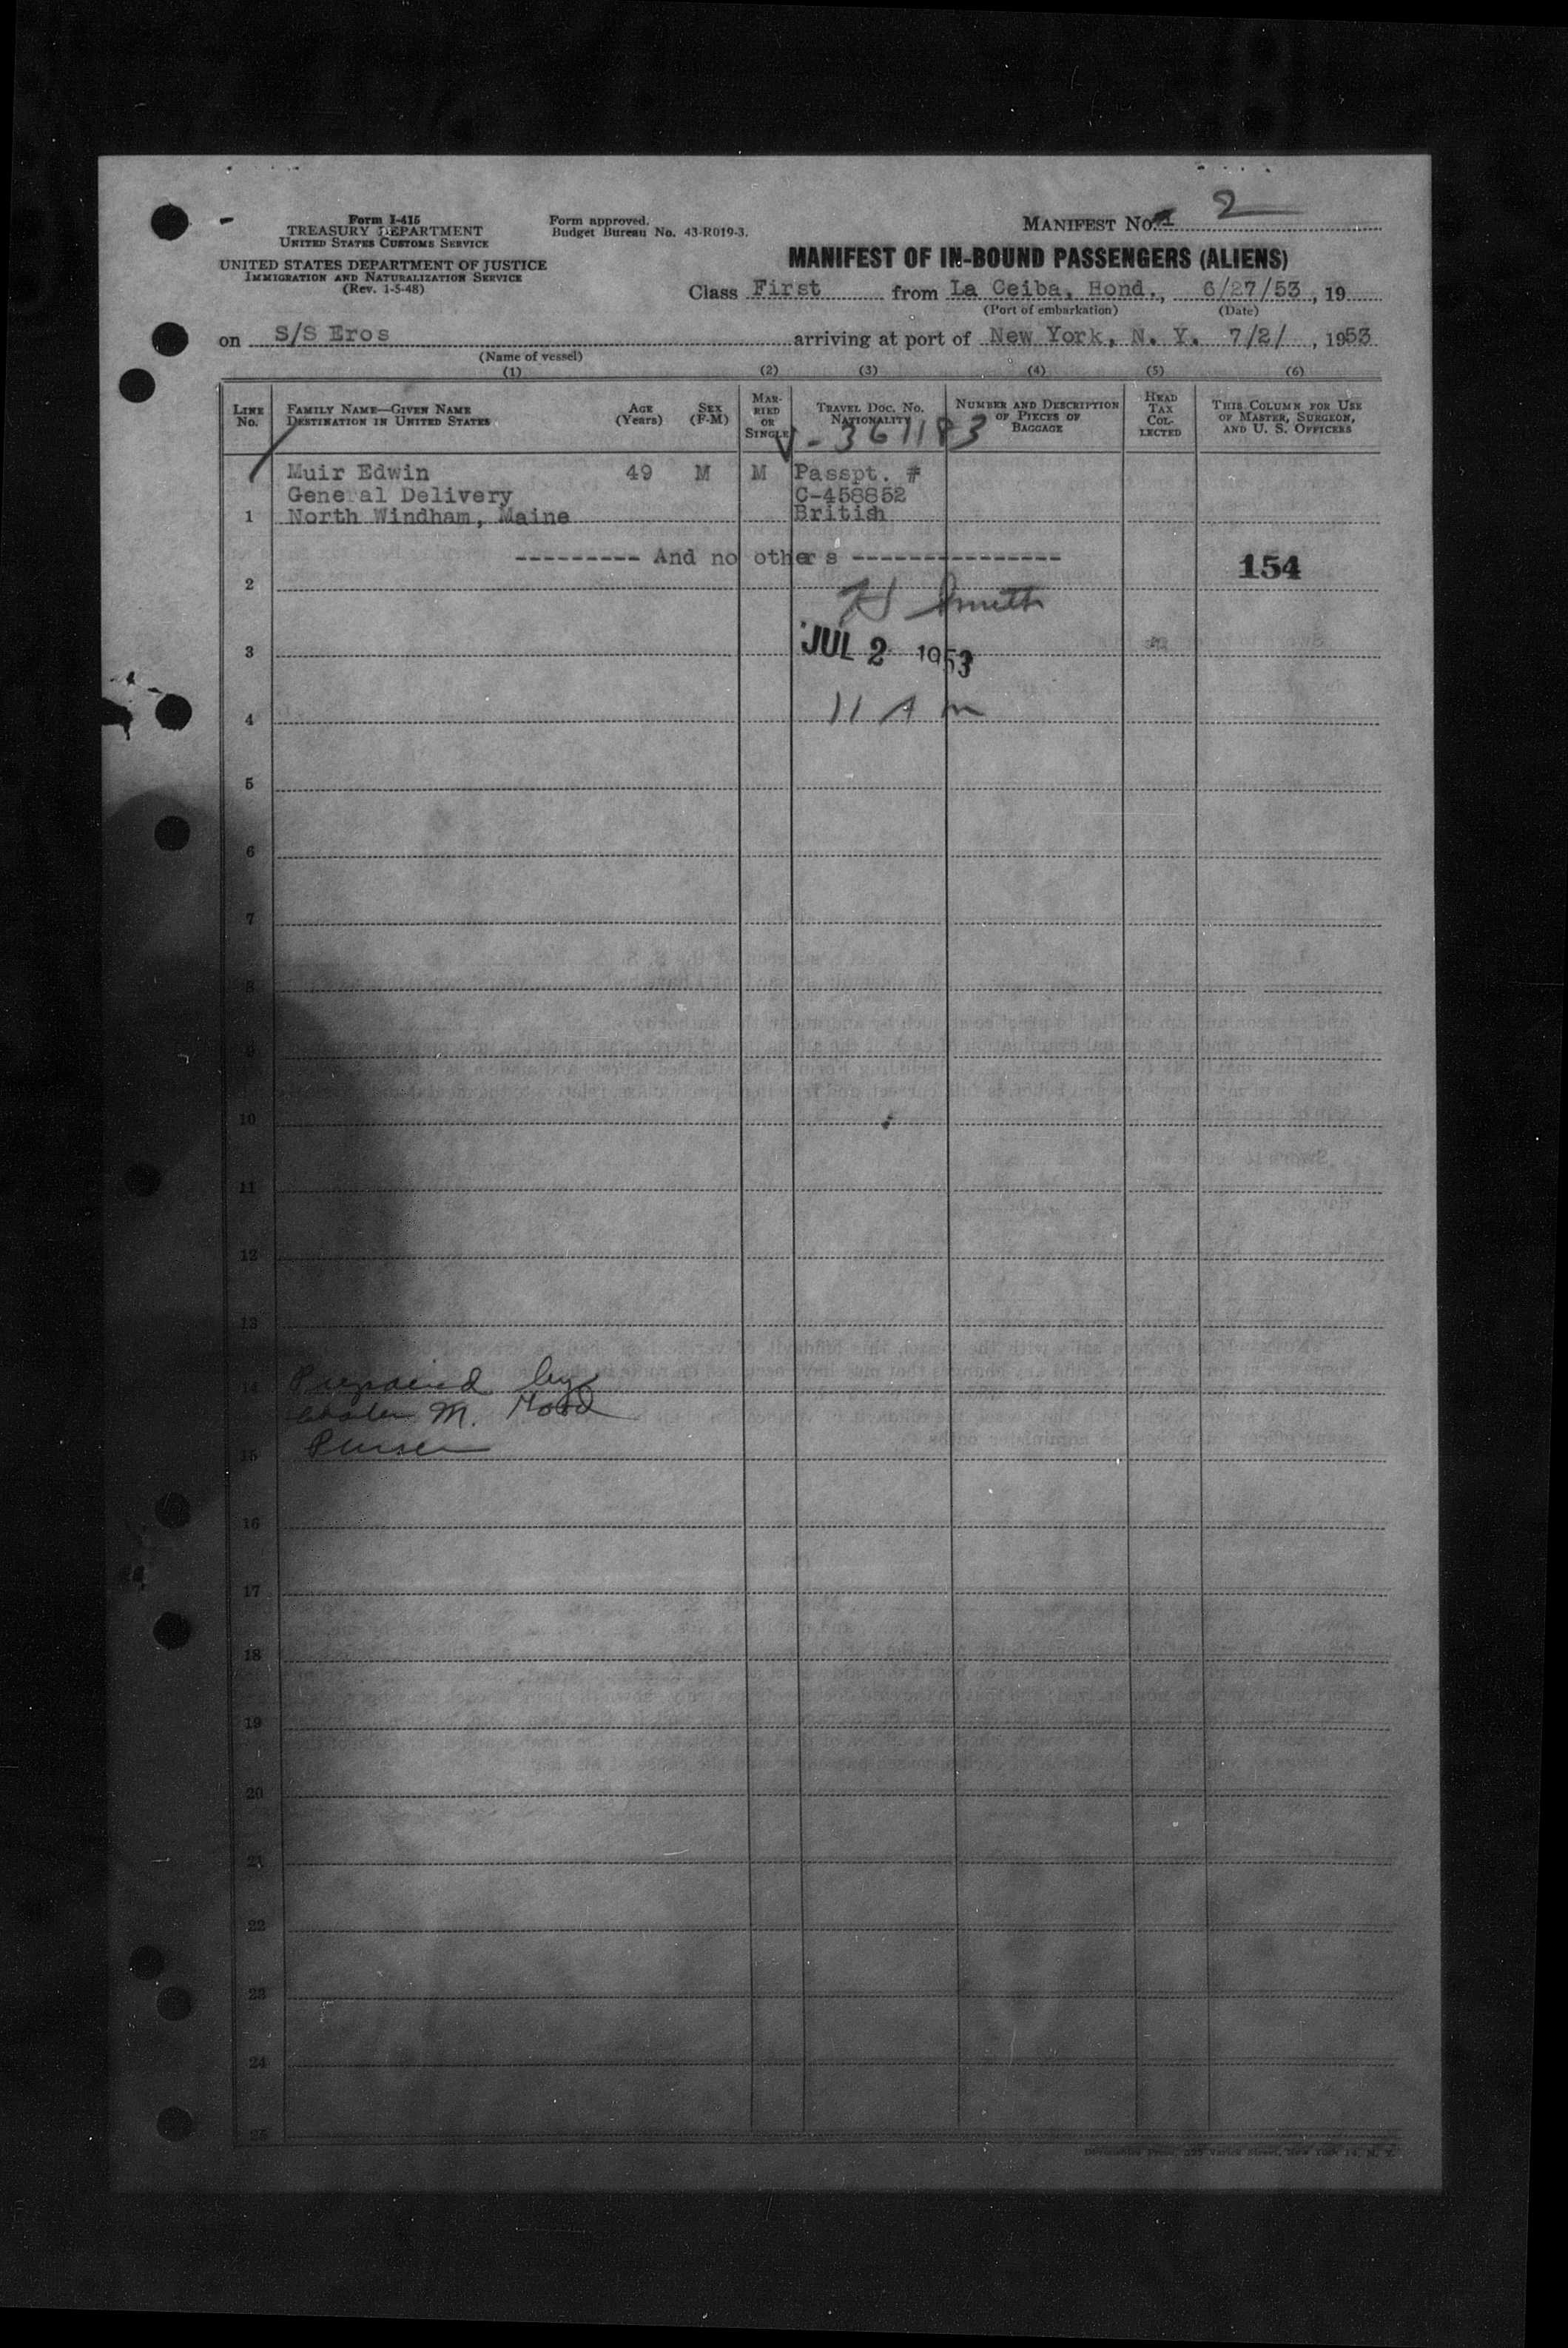 Form I-415
TREASURY DEPARTMENT
UNITED STATES CUSTOMS SERVICE
UNITED STATES DEPARTMENT OF JUSTICE
IMMIGRATION AND NATURALIZATION SERVICE
(Rev. 1-5-48)
Form approved.
Budget Bureau No. 43-R019-3.
MANIFEST No. 1 2
MANIFEST OF IN-BOUND PASSENGERS (ALIENS)
Class First from La Ceiba, Hond., 6/27/53, 19
(Port of embarkation) (Date)
on S/S Eros arriving at port of New York, N. Y. 7/2/, 1953
(Name of vessel)
(1) (2) (3) (4) (5) (6)
LINE No. FAMILY NAME—GIVEN NAME DESTINATION IN UNITED STATES AGE (Years) SEX (F-M) MARRIED OR SINGLE TRAVEL DOC. No. NATIONALITY NUMBER AND DESCRIPTION OF PIECES OF BAGGAGE HEAD TAX COLLECTED THIS COLUMN FOR USE OF MASTER, SURGEON, AND U. S. OFFICERS
V-361183
Muir Edwin 49 M M Passpt. #
General Delivery C-458852
1 North Windham, Maine British
--------- And no others ---------------
154
2
H Smith
3 JUL 2 1953
4 11 AM
5
6
7
8
9
10
11
12
13
14 Prepared by
M. Hood
15 Purser
16
17
18
19
20
21
22
23
24
25